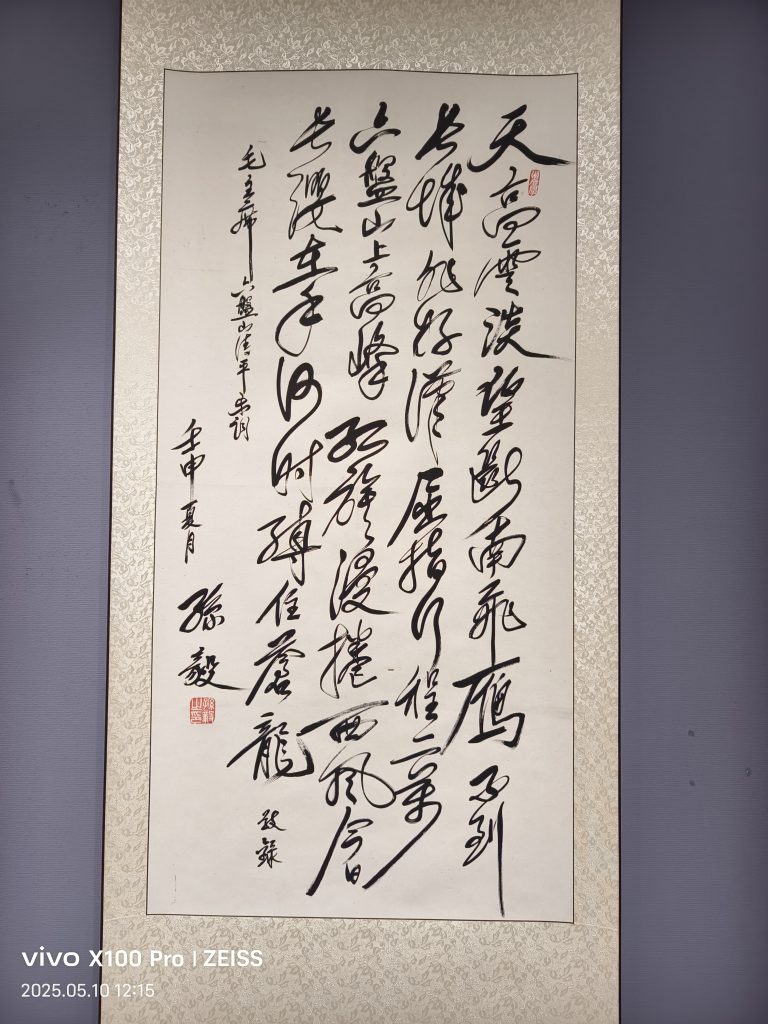 天高雲淡望斷南飛雁不到
长城非好漢屈指行程二萬
六盤山上高峰红旗漫捲西风今日
长缨在手何时缚住蒼龍 敬録
毛主席六盤山清平乐词
壬申夏月 孫毅
vivo X100 Pro | ZEISS
2025.05.10 12:15